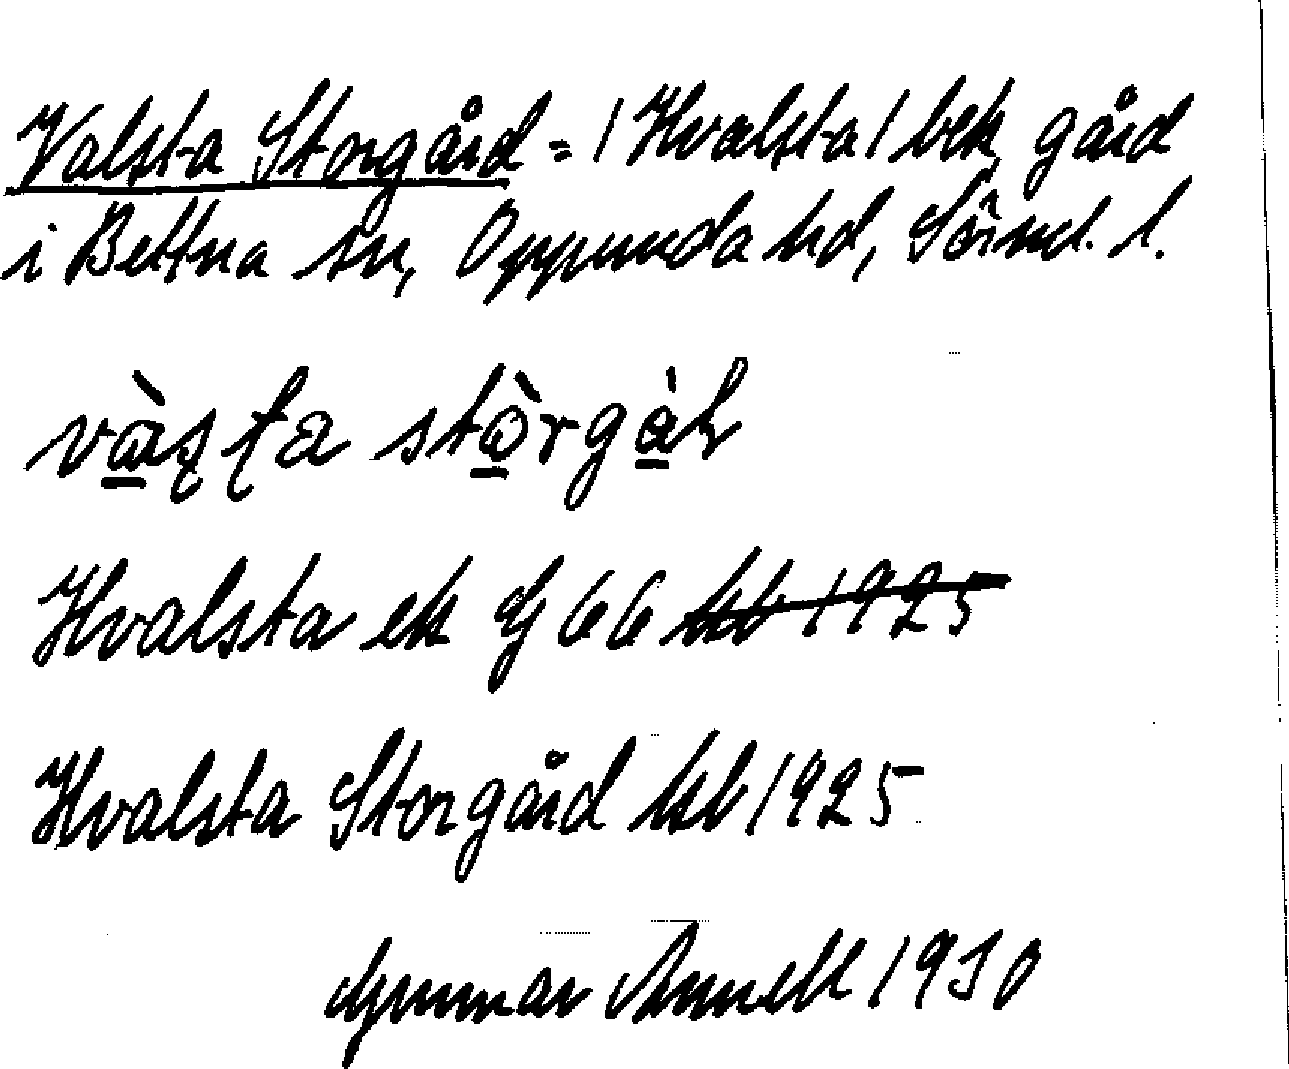 Valsta Storgård = / Hvalsta / bek gård
i Bettna sn, Oppunda hd, Sörml. l.
Hvalsta ek G 66 kb 1925
Hvalsta Storgård kb 1925
Gunnar Annell 1930